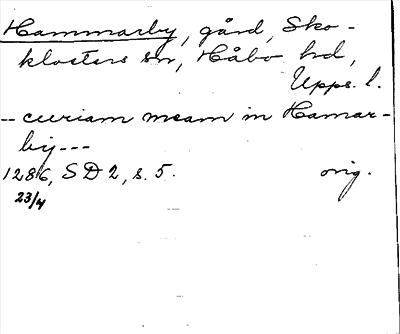 Hammarby, gård, Sko-
klosters sn, Håbo hd,
Upps. l.
-- curiam meam in Hamar-
bij---
1286, SD 2, s. 5. orig.
23/4